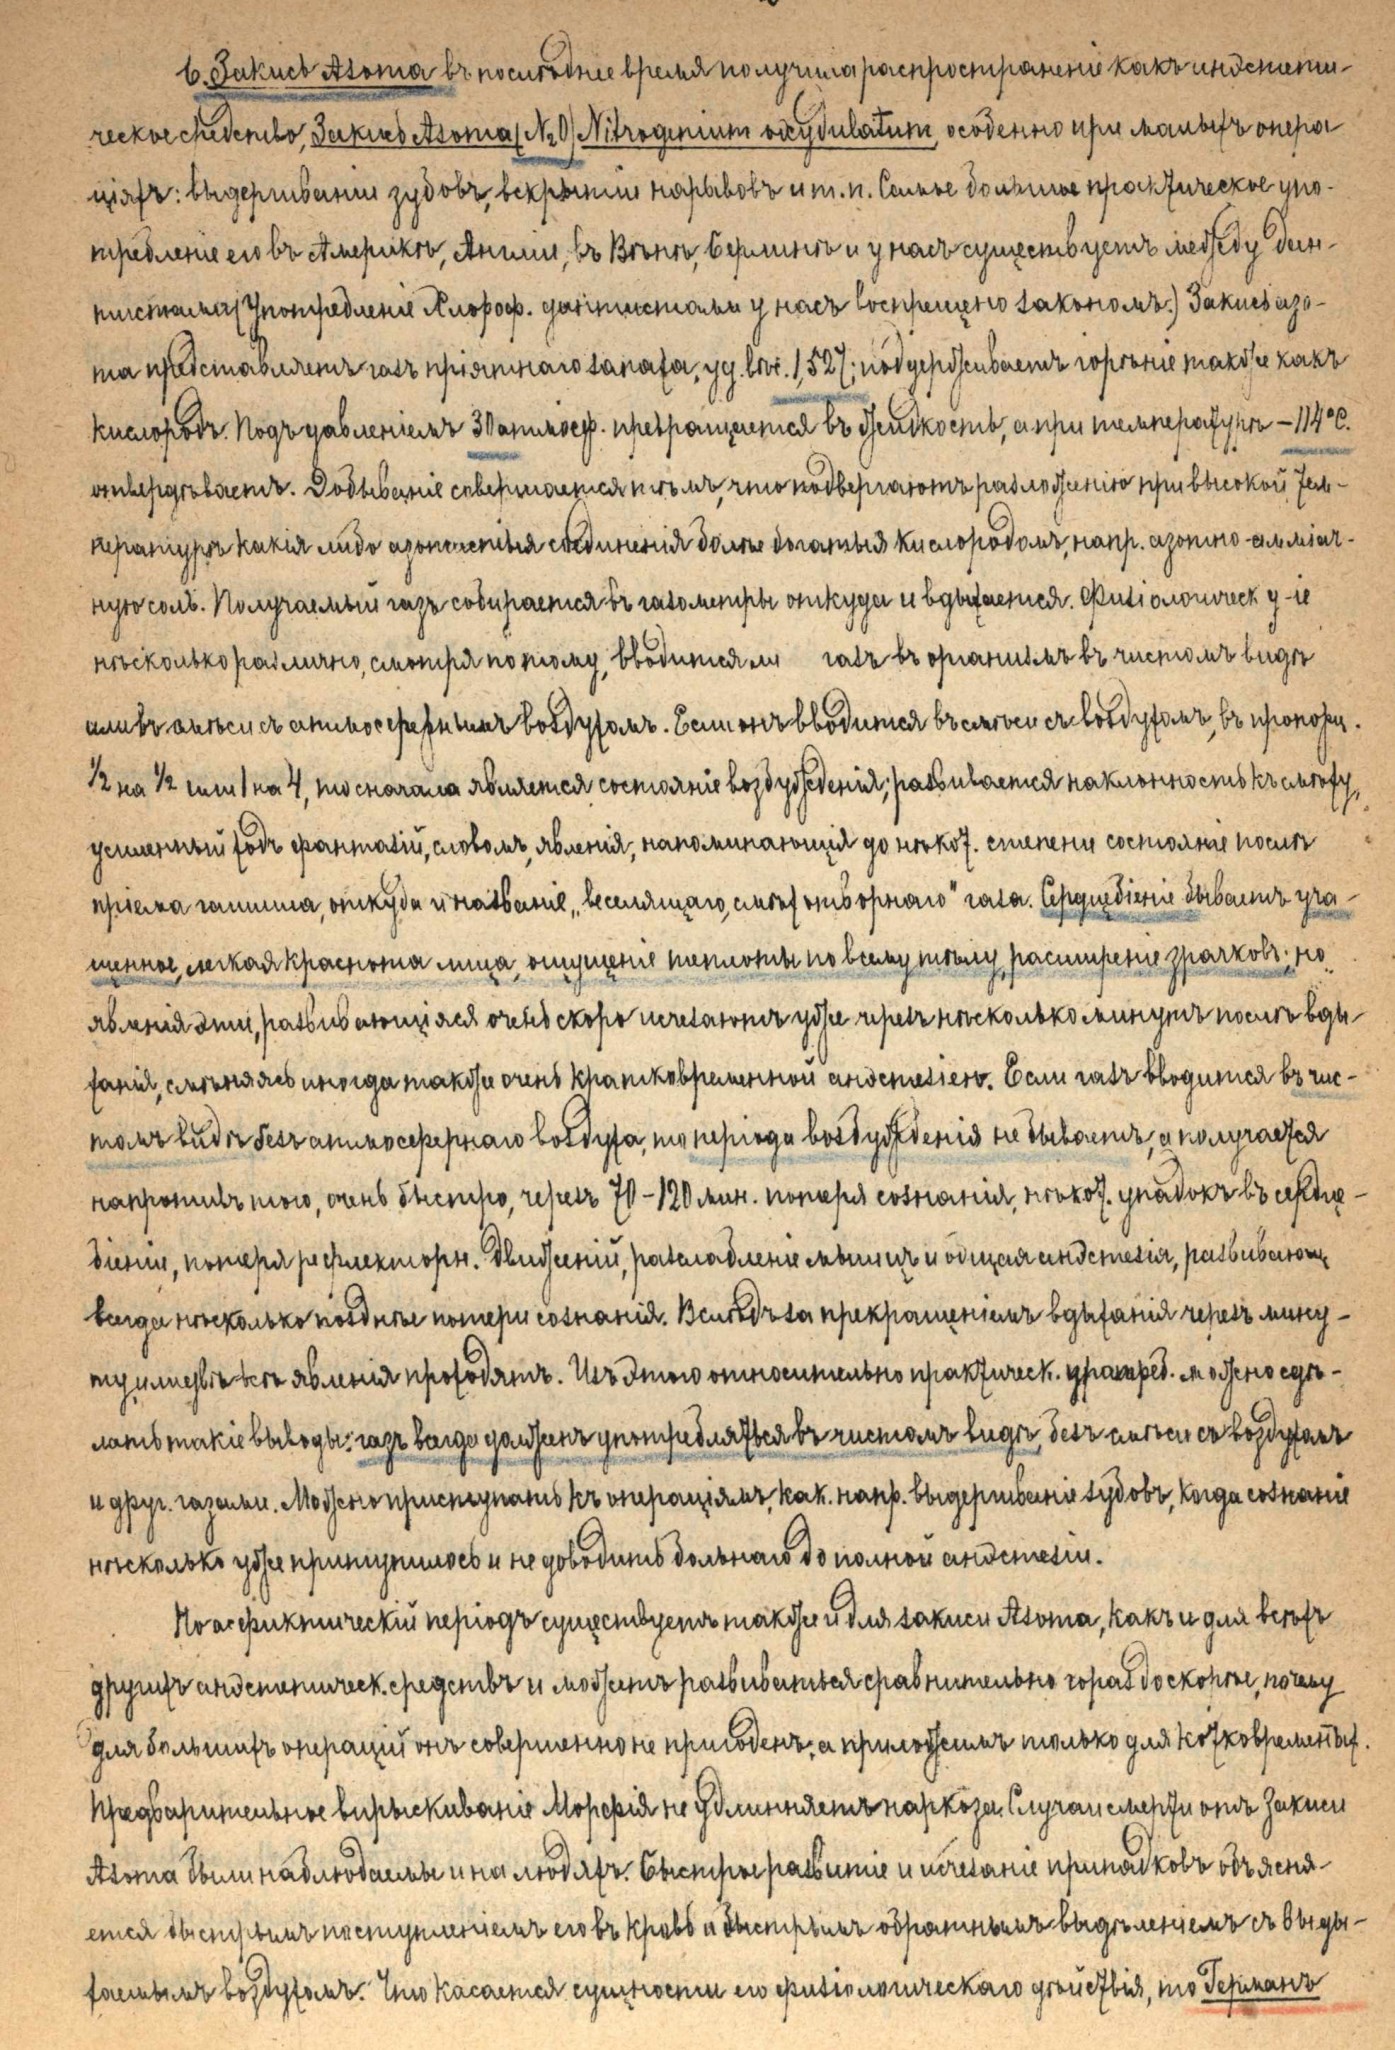 6. Закись Азота въ послѣднее время получила распространеніе какъ анэстети-
ческое средство, Закись Азота (N₂O) Nitrogenium oxydulatum, особенно при малыхъ опера
ціяхъ: выдергиваніи зубовъ, вскрытіи нарывовъ и т. п. Самое большое практическое упо-
требленіе его въ Америкѣ, Англіи, въ Вѣнѣ, Берлинѣ и у насъ существуетъ между дан-
тистами (Употребленіе Хлороф. дантистами у насъ воспрещено закономъ.) Закись азо-
та представляетъ газъ пріятнаго запаха, уд. вѣс. 1,527; поддерживаетъ горѣніе также какъ
кислородъ. Подъ давленіемъ 30 атмосф. превращается въ жидкость, а при температурѣ – 114°C.
отвердѣваетъ. Добываніе совершается тѣмъ, что подвергаютъ разложенію при высокой тем-
пературѣ какія либо азотистыя соединенія болѣе богатыя кислородомъ, напр. азотно-амміач-
ную соль. Получаемый газъ собирается въ газометры откуда и вдыхается. Физіологическ д-іе
нѣсколько различно, смотря потому, вводится ли газъ въ организмъ въ чистомъ видѣ
или въ смѣси съ атмосфернымъ воздухомъ. Если онъ вводится въ смѣси съ воздухомъ, въ пропорц.
½ на ½ или 1 на 4, то сначала является состояніе возбужденія; развивается наклонность къ смѣху,
усиленный ходъ фантазій, словомъ, явленія, напоминающія до нѣкот. степени состояніе послѣ
пріема гашиша, откуда и названіе „веселящаго, смѣхотворнаго" газа. Сердцебіеніе бываетъ уча-
щенное, легкая краснота лица, ощущеніе теплоты по всему тѣлу, расширеніе зрачковъ; но
явленія эти, развивающіяся очень скоро исчезаютъ уже черезъ нѣсколько минутъ послѣ вды-
ханія, смѣняясь иногда также очень кратковременной анэстезіею. Если газъ вводится въ чис-
томъ видѣ безъ атмосфернаго воздуха, то періода возбужденія не бываетъ, а получается
напротивъ того, очень быстро, черезъ 70–120 мин. потеря сознанія, нѣкот. упадокъ въ сердце-
біеніи, потеря рефлекторн. движеній, разслабленіе мышцъ и общая анэстезія, развивающ
всегда нѣсколько позднѣе потери сознанія. Вслѣдъ за прекращеніемъ вдыханія черезъ мину-
ту или двѣ всѣ явленія проходятъ. Изъ этого относительно практическ. употреб. можно сдѣ-
лать такіе выводы: газъ всегда долженъ употребляться въ чистомъ видѣ, безъ смѣси съ воздухомъ
и друг. газами. Можно приступать къ операціямъ, как. напр. выдергиваніе зубовъ, когда сознаніе
нѣсколько уже притупилось и не доводить больнаго до полной анэстезіи.
Но асфиктическій періодъ существуетъ также и для закиси Азота, какъ и для всѣхъ
другихъ анэстетическ. средствъ и можетъ развиваться сравнительно гораздо скорѣе, почему
для большихъ операцій онъ совершенно не пригоденъ, а приложимъ только для котковременных.
Предварительное впрыскиваніе Морфія не удлинняетъ наркоза. Случаи смерти отъ Закиси
Азота были наблюдаемы и на людяхъ. Быстрое развитіе и исчезаніе припадковъ объясня-
ется быстрымъ поступленіемъ его въ кровь и быстрымъ обратнымъ выдѣленіемъ съ выды-
хаемымъ воздухомъ. Что касается сущности его физіологическаго дѣйствія, то Германъ